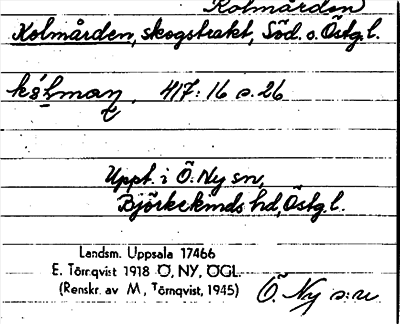 Kolmården
Kolmården, skogstrakt, Söd. o. Östg.l.
417: 16 s. 26
Uppt. i Ö. Ny sn,
Björkekinds hd, Östg.l.
Landsm. Uppsala 17466
E. Törnqvist 1918 Ö, NY, ÖGL.
(Renskr. av M, Törnqvist, 1945)
Ö. Ny s:n